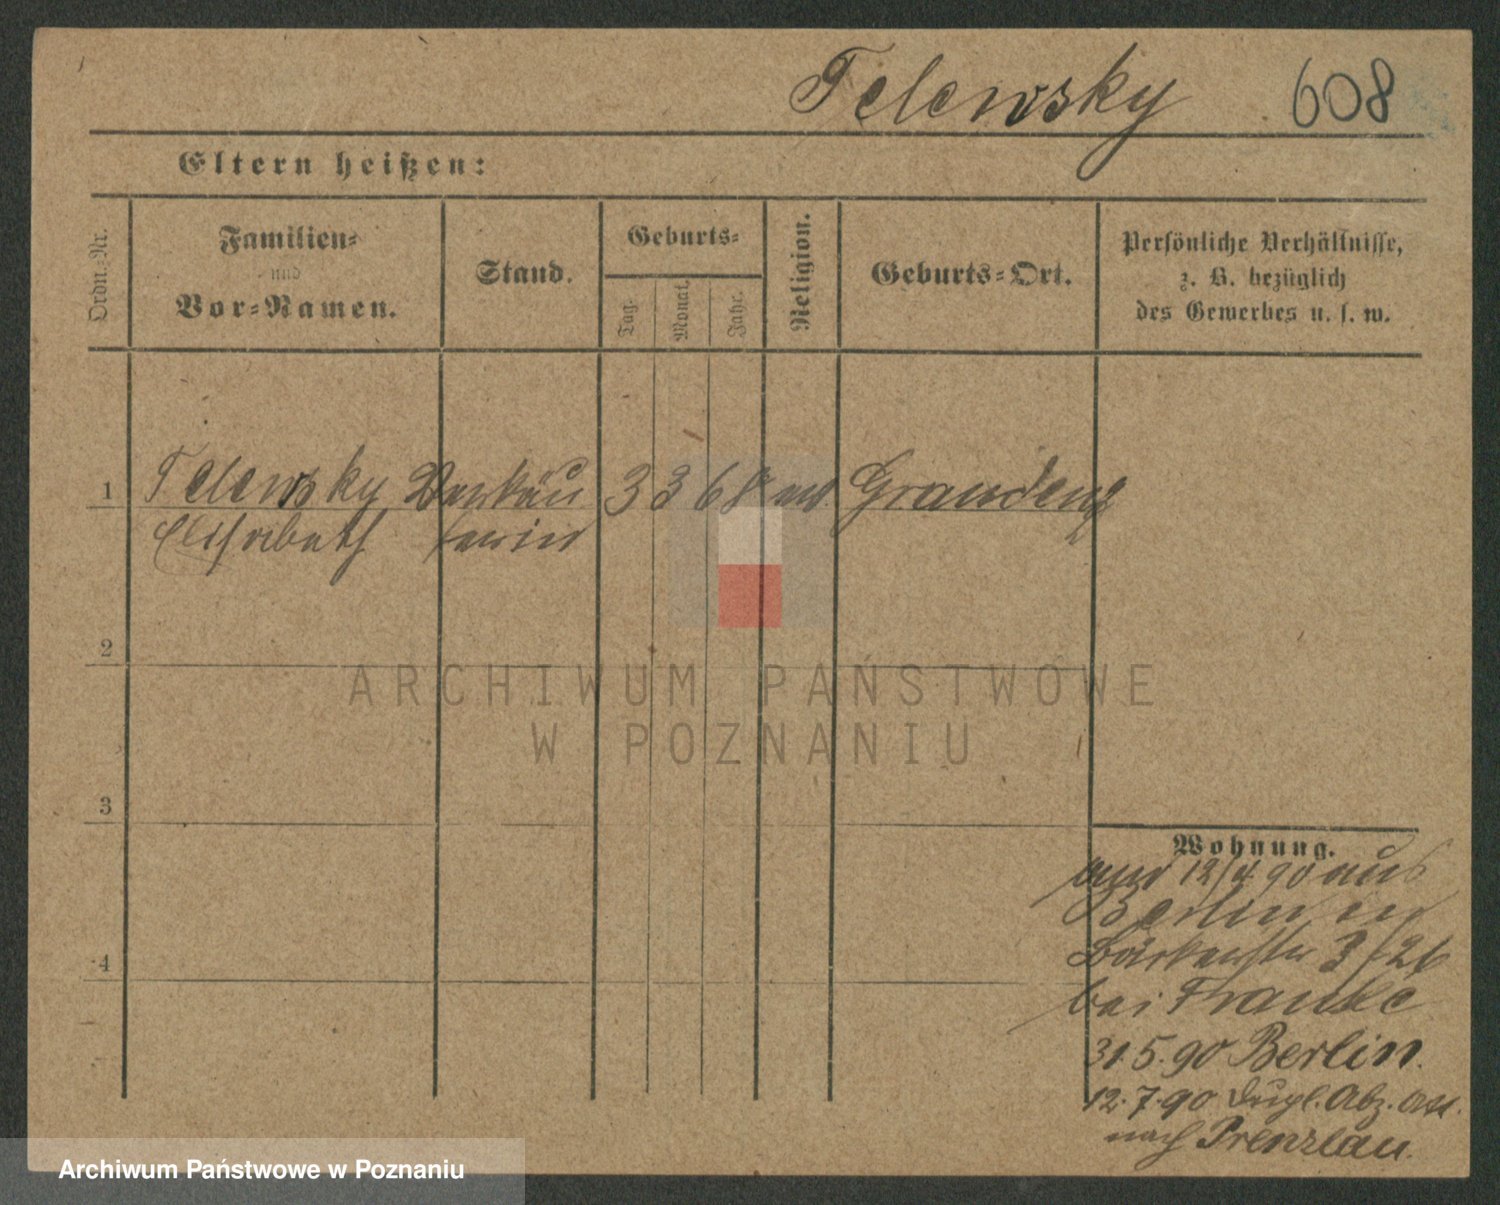 Telewsky 608
Eltern heißen:
Ordn.-Nr.
Familien-
und
Vor-Namen.
Stand.
Geburts-
Tag.
Monat.
Jahr.
Religion.
Geburts-Ort.
Persönliche Verhältnisse,
z. B. bezüglich
des Gewerbes u. s. w.
1 Telewsky Verkäu 3 3 68 ev. Graudenz
Elisabeth ferin
2
ARCHIWUM PAŃSTWOWE
W POZNANIU
3
Wohnung.
12/4 90 aus
Berlin in
Bäckerstr 3/26
bei Franke
4
31.5.90 Berlin.
12.7.90 Dupl. Abz. Att.
nach Prenzlau.
Archiwum Państwowe w Poznaniu